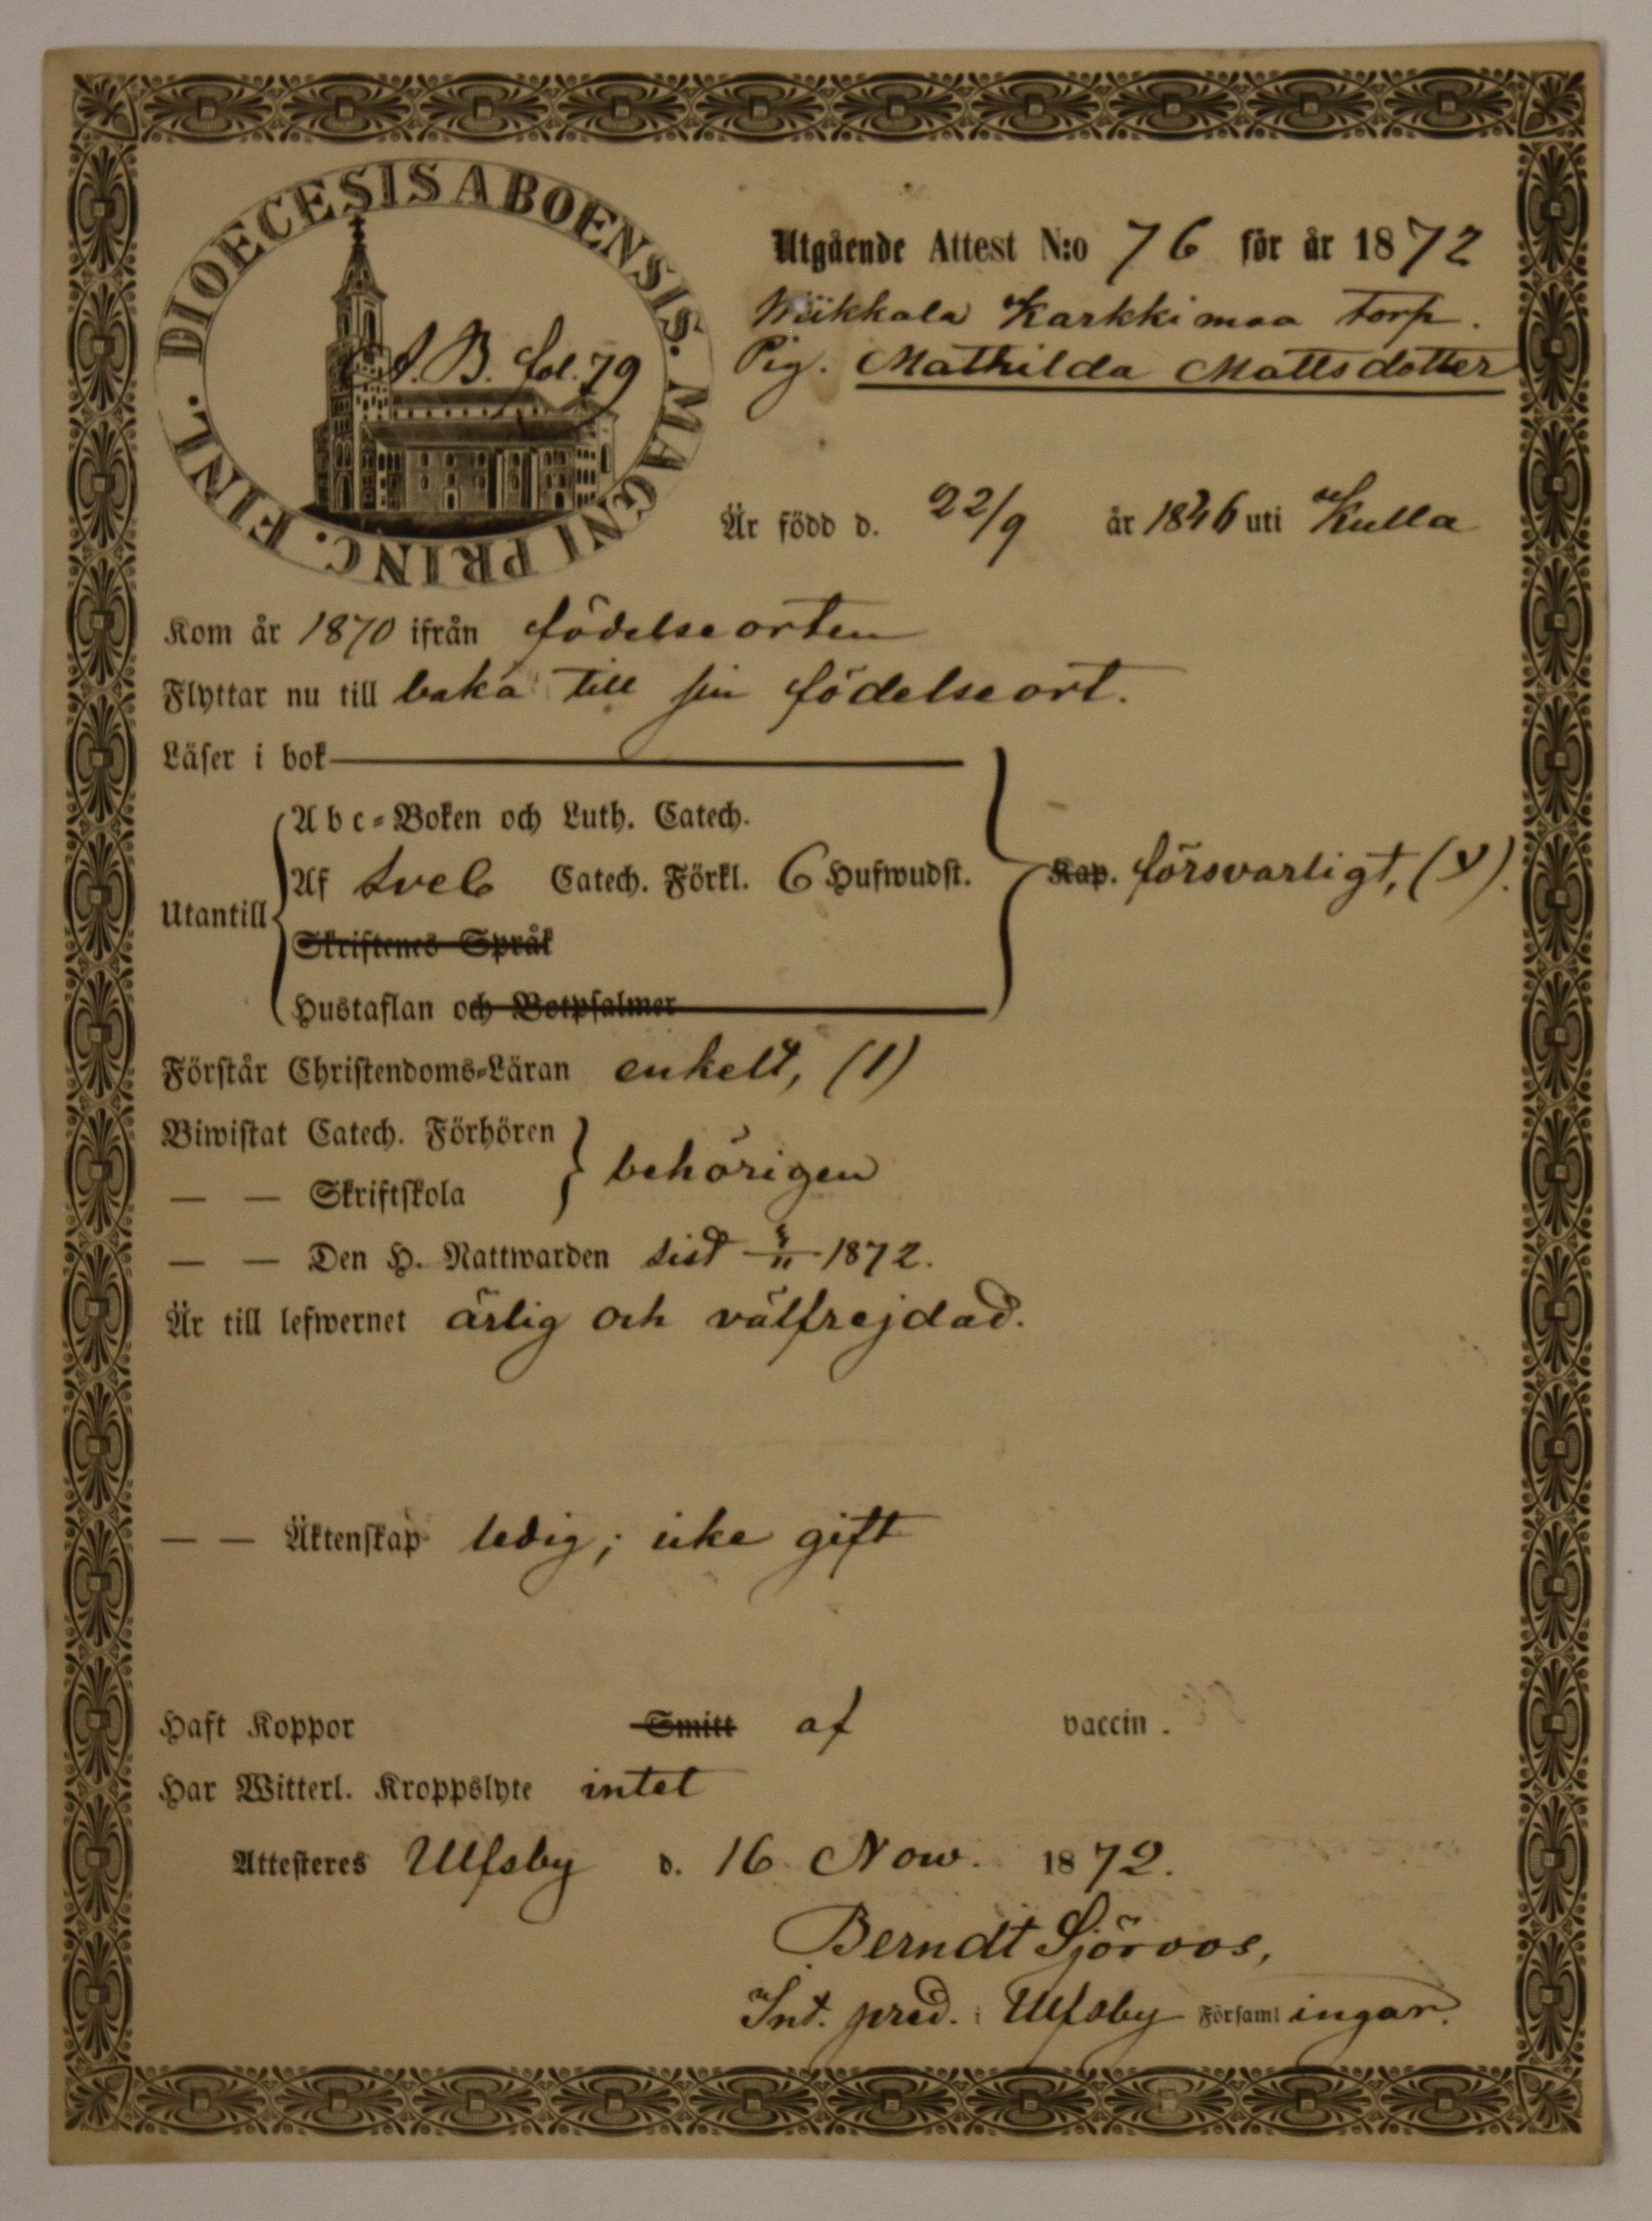 DIOECESIS ABOENSIS. MAGNI PRINC. FINL.
S. B. fol. 79
Utgående Attest N:o 76 för år 1872
Wiikkala Karkkimaa torp.
Pig. Mathilda Mattsdotter
Är född d. 22/9 år 1846 uti Kulla
Kom år 1870 ifrån födelseorten
Flyttar nu till baka till sin födelseort.
Läser i bok
Abc-Boken och Luth. Catech.
Af Sveb Catech. Förkl. 6 Hufwudst.
Kap. försvarligt, (v).
Utantill
Skriftenes Språk
Hustaflan och Botpsalmer
Förstår Christendoms-Läran enkelt, (1)
Biwistat Catech. Förhören
behörigen
— — Skriftskola
— — Den H. Nattwarden sist /11 1872.
Är till lefwernet ärlig och välfrejdad.
— — Äktenskap ledig; icke gift
Haft Koppor Smitt af vaccin.
Har Witterl. Kroppslyte intet
Attesteres Ulfsby d. 16 Now. 1872.
Berndt Sjöroos,
Int. pred. i Ulfsby Församlingar.